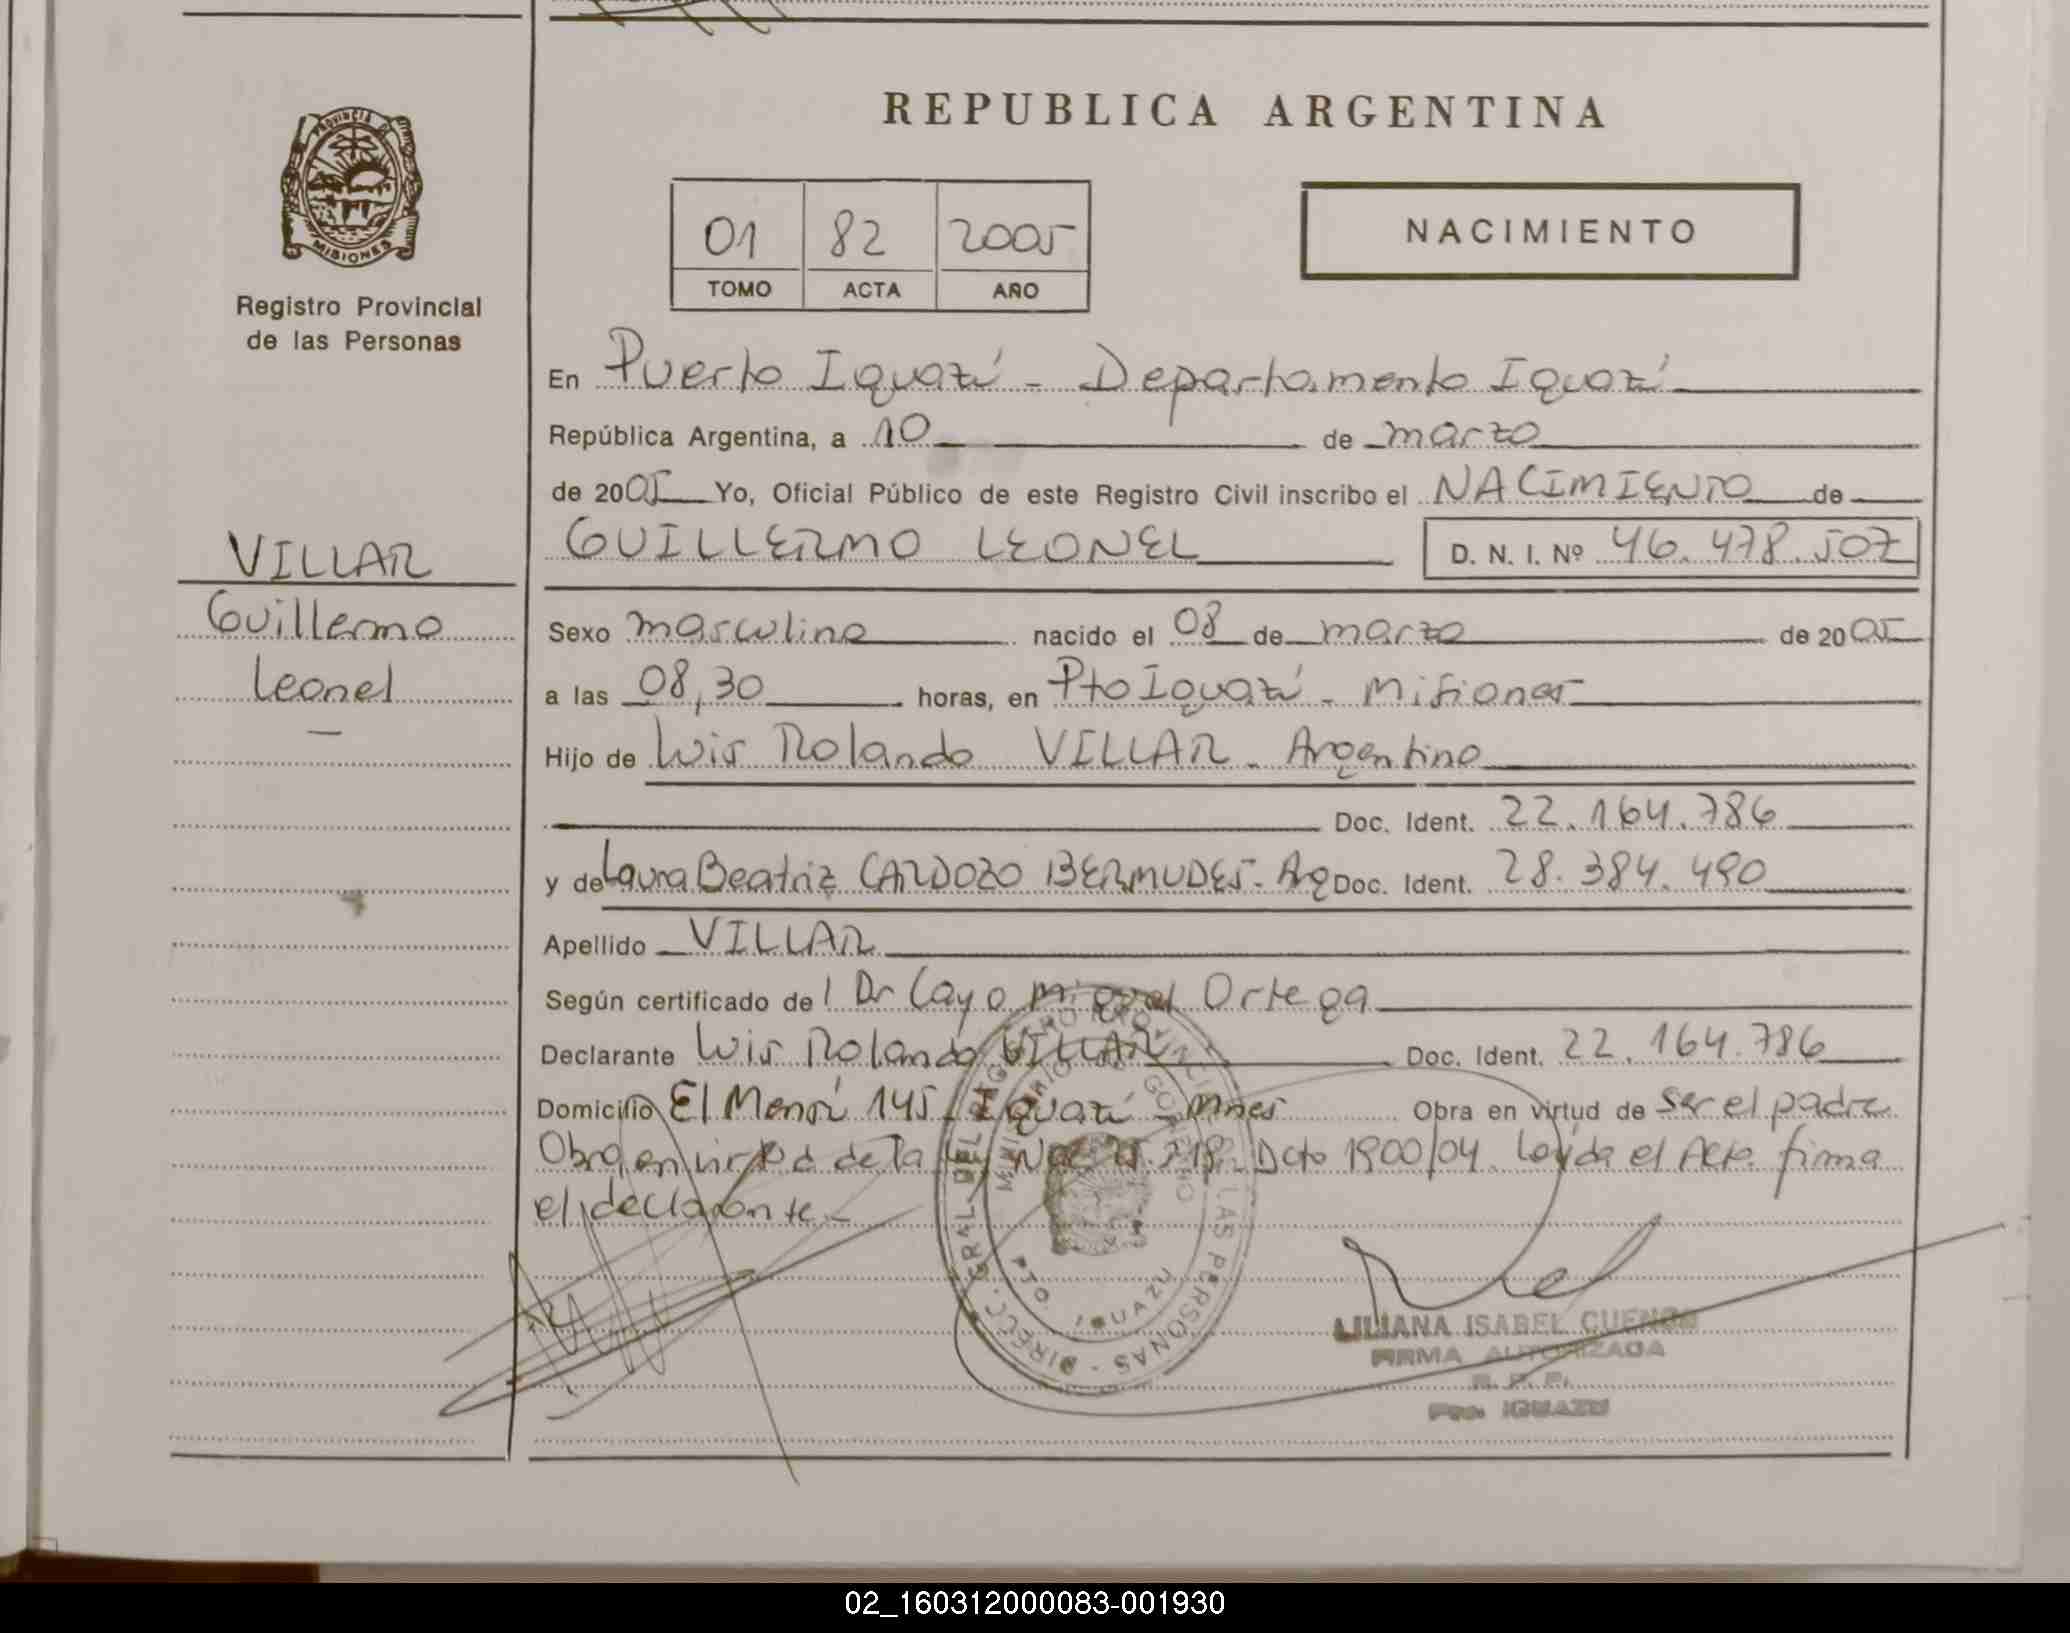 PROVINCIA DE
MISIONES
Registro Provincial
de las Personas
VILLAR
Guillermo
Leonel
REPUBLICA ARGENTINA
01 82 2005
TOMO ACTA AÑO
NACIMIENTO
En Puerto Iguazú - Departamento Iguazú
República Argentina, a 10 de marzo
de 2005 Yo, Oficial Público de este Registro Civil inscribo el NACIMIENTO de
GUILLERMO LEONEL D. N. I. Nº 46.478.507
Sexo masculino nacido el 08 de marzo de 2005
a las 08,30 horas, en Pto Iguazú - Misiones
Hijo de Luis Rolando VILLAR - Argentino
Doc. Ident. 22.164.786
y de Laura Beatriz CARDOZO BERMUDES - Arg Doc. Ident. 28.384.490
Apellido VILLAR
Según certificado del Dr Cayo Miguel Ortega
Declarante Luis Rolando VILLAR Doc. Ident. 22.164.786
Domicilio El Mensú 145 - Iguazú - Mnes Obra en virtud de ser el padre
Obra en virtud de la Ley Nac 25.
Dcto 1900/04. Leída el Acta firma
el declarante -
DIRECC. GRAL DEL REGISTRO PROVINCIAL DE LAS PERSONAS
MINISTERIO GOBIERNO
PTO. IGUAZU
LILIANA ISABEL CUENCA
FIRMA AUTORIZADA
R. P. P.
Pto. IGUAZU
02_160312000083-001930